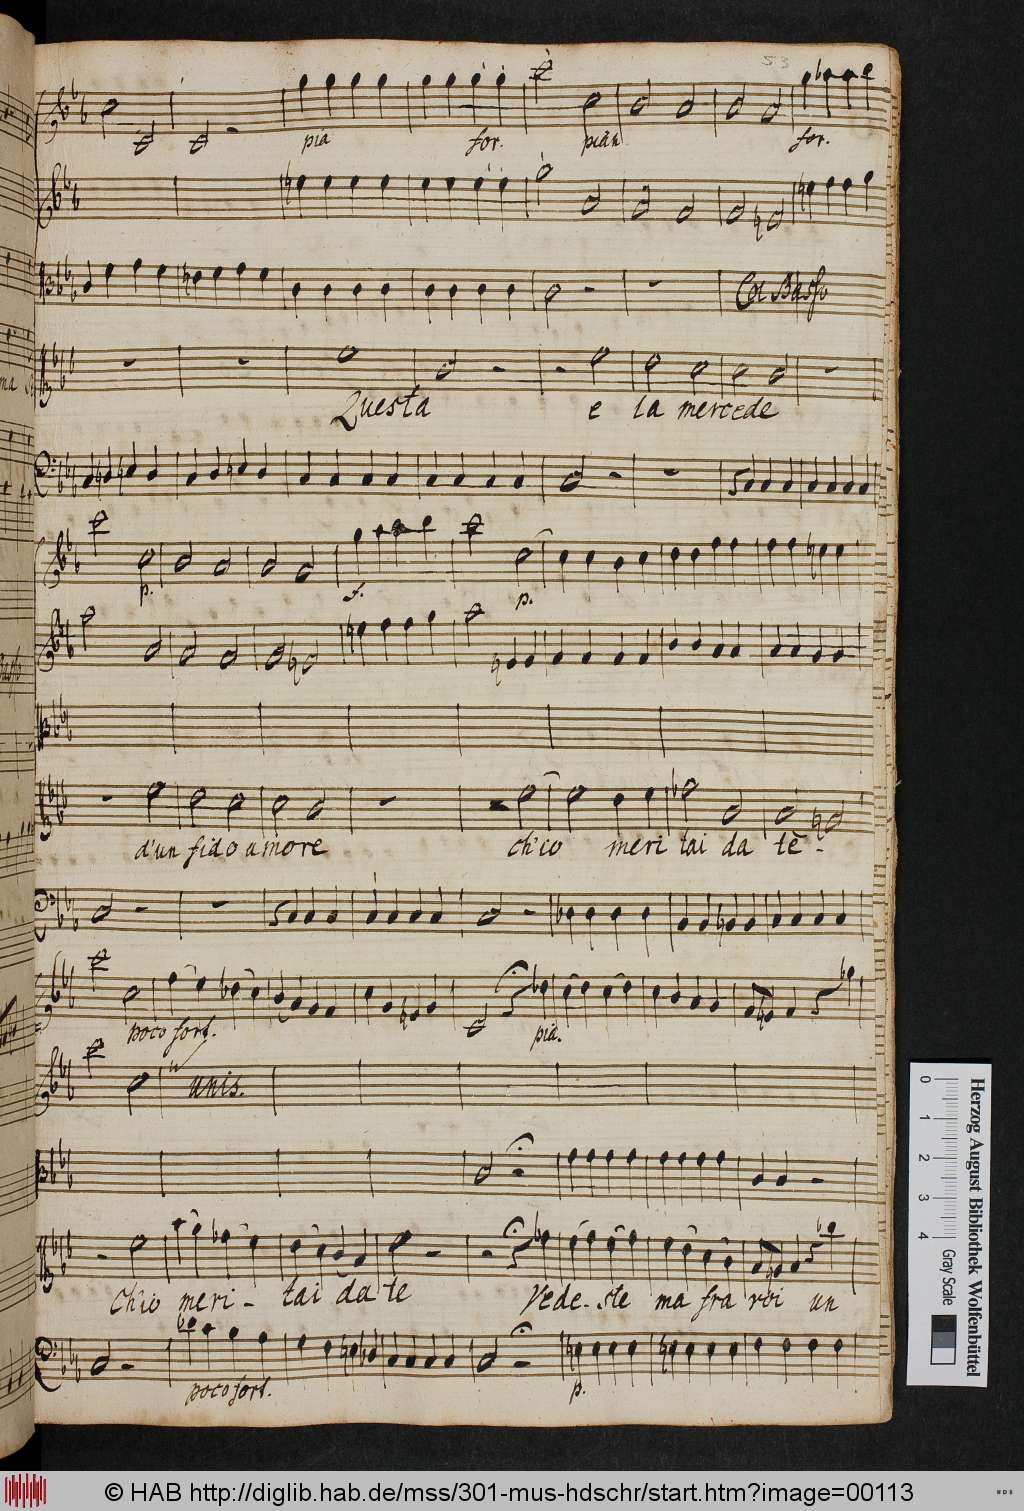 53
pia for. pian for.
Col Basso
Questa e la mercede
p. f. p.
d'un fido amore ch'io meri tai da te -
poco fort. pia.
unis.
Ch'io meri - tai da te Vede - ste ma fra voi un
poco fort. p.
0 1 2 3 4
Gray Scale
Herzog August Bibliothek Wolfenbüttel
© HAB http://diglib.hab.de/mss/301-mus-hdschr/start.htm?image=00113
WDB